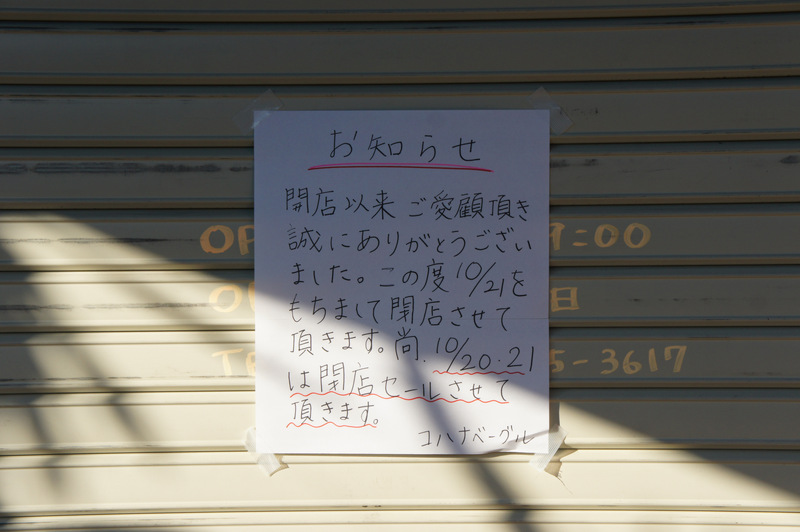 お知らせ
開店以来 ご愛顧頂き
誠にありがとうござい
ました。この度10/21を
もちまして閉店させて
頂きます。尚、10/20・21
は閉店セールさせて
頂きます。
コハナベーグル
OP 9:00
O 日
TE 5-3617